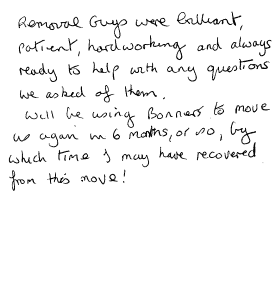 Removal Guys were brilliant,
patient, hardworking and always
ready to help with any questions
we asked of them.
Will be using Bonners to move
us again in 6 months, or so, by
which time I may have recovered
from this move!